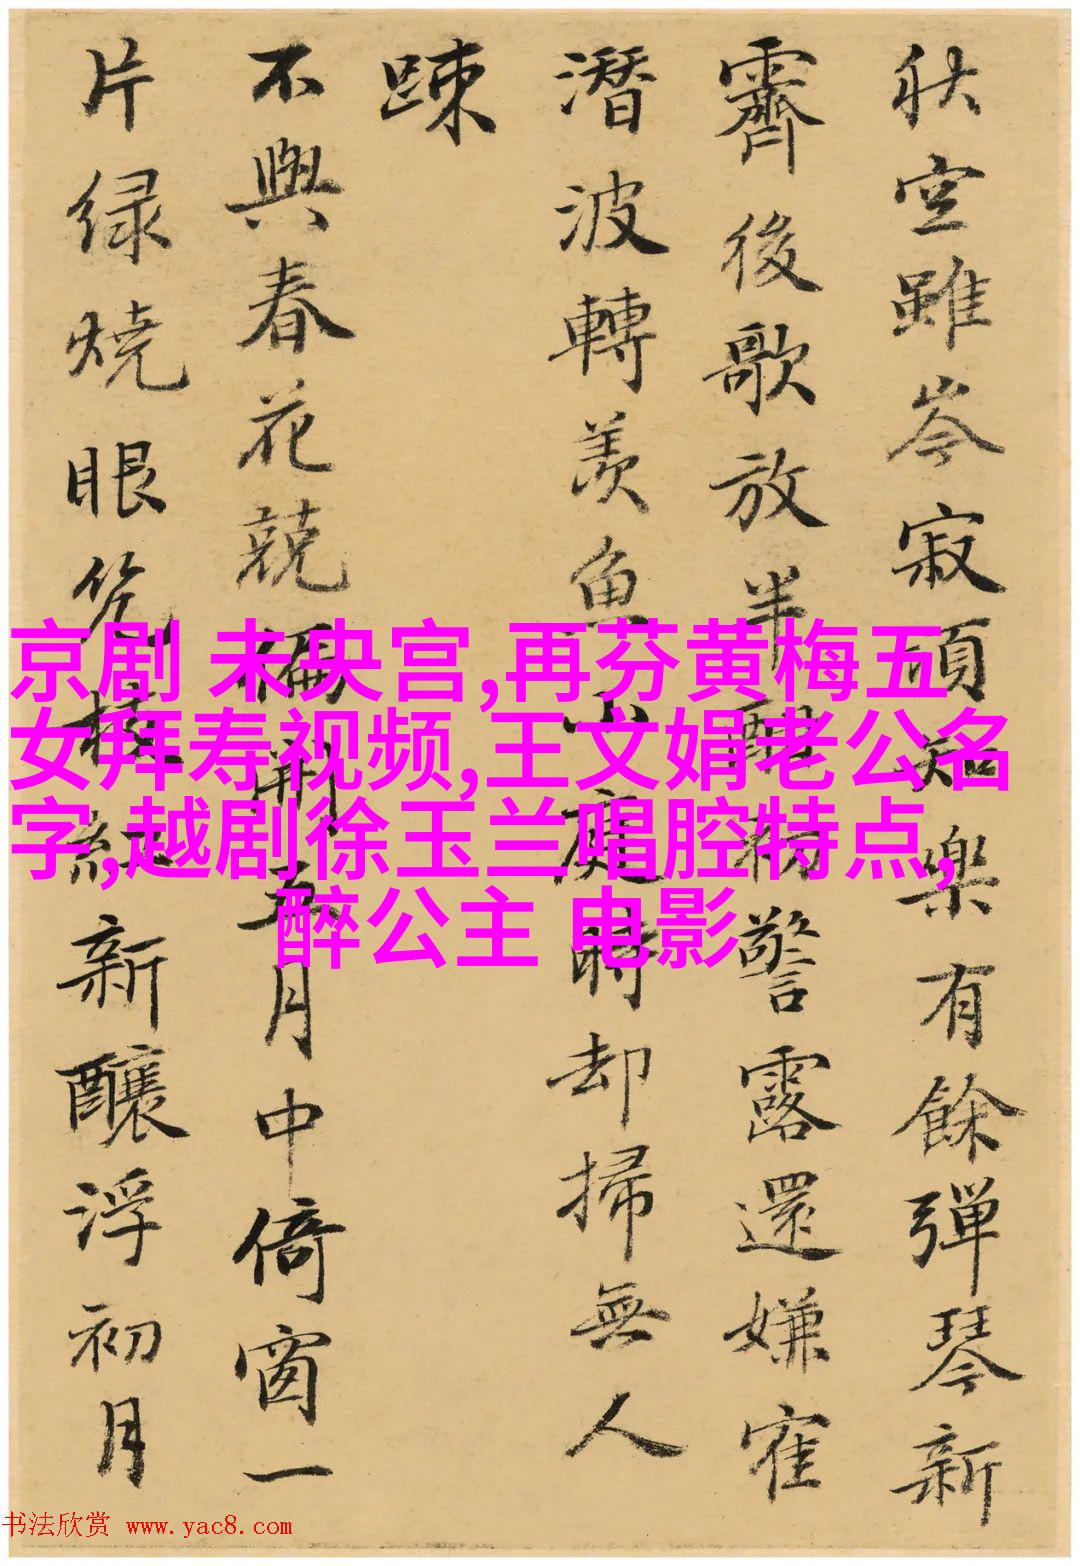 秋空雖岑寂須知樂有餘彈琴新
霽後歌放半酣初警露還嫌寉
潛波轉羨魚時却掃無人
踈
不與春花競偏開五月中倚窗一
片緑燒眼枝紅新釀浮初月
京剧 未央宫,再芬黄梅五
女拜寿视频,王文娟老公名
字,越剧徐玉兰唱腔特点,
醉公主 电影
书法欣赏 www.yac8.com